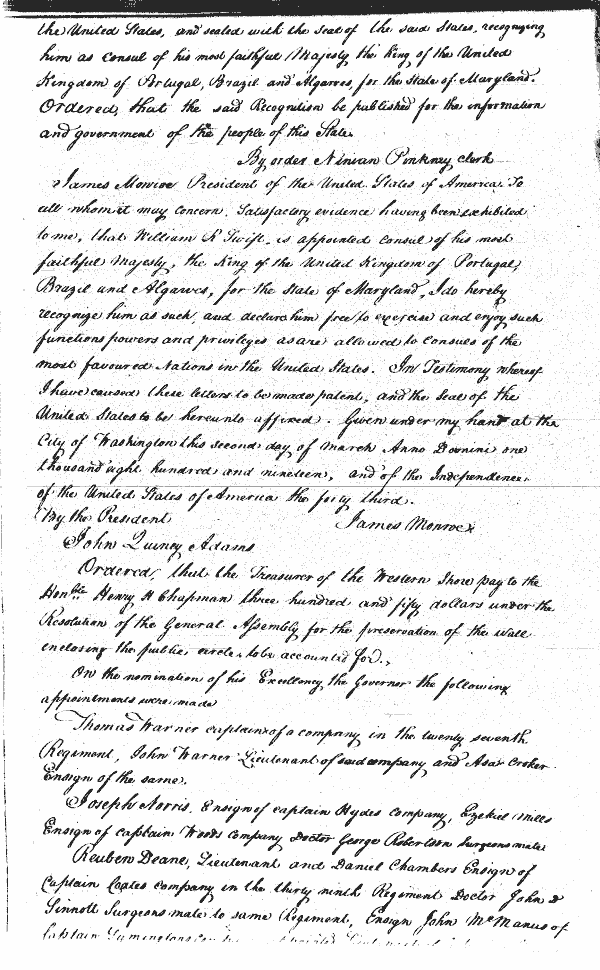 the United States, and sealed with the seal of the said States, recognizing
him as consul of his most faithful Majesty the King of the United
Kingdom of Portugal, Brazil and Algarves, for the State of Maryland.
Ordered, that the said Recognition be published for the information
and government of the people of this State.
By order Ninian Pinkney clerk
James Monroe President of the United States of America. To
all whom it may concern. Satisfactory evidence having been exhibited
to me, that William R Swift, is appointed consul of his most
faithful Majesty, the King of the United Kingdom of Portugal,
Brazil and Algarves, for the State of Maryland, I do hereby
recognize him as such, and declare him free to exercise and enjoy such
functions powers and privileges as are allowed to consuls of the
most favoured Nations in the United States. In Testimony whereof
I have caused these letters to be made patent, and the Seal of the
United States to be hereunto affixed. Given under my hand at the
City of Washington this second day of March Anno Domini one
thousand eight hundred and nineteen, and of the Independence
of the United States of America the forty third.
By the President James Monroe
John Quincy Adams
Ordered, that the Treasurer of the Western Shore pay to the
Honble Henry H Chapman three hundred and fifty dollars under the
Resolution of the General Assembly for the preservation of the wall
enclosing the public circle, to be accounted for.
On the nomination of his Excellency the Governor the following
appointments were made
Thomas Warner captain of a company in the twenty seventh
Regiment, John Warner Lieutenant of said company and Asa Croker
Ensign of the same.
Joseph Norris, Ensign of captain Hydes company, Ezekiel Mills
Ensign of captain Woods company Doctor George Robertson Surgeons mate
Reuben Deane, Lieutenant and Daniel Chambers Ensign of
Captain Coates company in the thirty ninth Regiment Doctor John D
Sinnott Surgeons mate to same Regiment, Ensign John McManus of
Captain